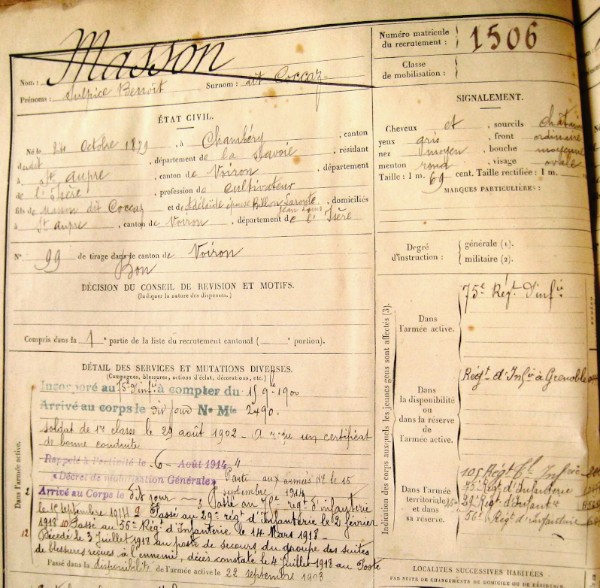 Masson
Nom :
Surnom : dit Coccaz
Prénoms : Sulpice Benoit
Numéro matricule
du recrutement :
1506
Classe
de mobilisation :
ÉTAT CIVIL.
Né le 24 octobre 1879, à Chambéry, canton
dudit, département de la Savoie, résidant
à St Aupre, canton de Voiron, département
de l'Isère, profession de cultivateur
fils de Masson dit Coccaz et de Adélaïde, domiciliés
à St Aupre, canton de Voiron, département de l'Isère
N° 99 de tirage dans le canton de Voiron
Bon
SIGNALEMENT.
Cheveux et sourcils
yeux gris, front ordinaire
nez moyen, bouche moyenne
menton rond, visage ovale
Taille : 1 m. 69 cent. Taille rectifiée : 1 m.
MARQUES PARTICULIÈRES :
DÉCISION DU CONSEIL DE RÉVISION ET MOTIFS.
(Indiquer la nature des dispenses.)
Compris dans la 1e partie de la liste du recrutement cantonal ( portion).
Degré
d'instruction :
générale (1).
militaire (2).
DÉTAIL DES SERVICES ET MUTATIONS DIVERSES.
(Campagnes, blessures, actions d'éclat, décorations, etc.)
Dans l'armée active.
Incorporé au 75e Inf. à compter du 15 9bre 1900
Arrivé au corps le dit jour N° Mle 2490.
Soldat de 1e classe le 29 août 1902 - A reçu un certificat
de bonne conduite
Rappelé à l'activité le 6 Août 1914
(Décret de mobilisation Générale)
Passé aux armées le 15
septembre 1914
Arrivé au Corps le dit jour
Passé au rég. d'Infanterie
le 10 septembre 1914
Passé au 29e rég. d'Infanterie le 2 février
1918 Passé au 56e Rég. d'Infanterie le 14 Mars 1918
Décédé le 3 juillet 1918 au poste de secours du groupe des suites
de blessures reçues à l'ennemi, décès constaté le 4 juillet 1918 au Poste
Passé dans la disponibilité de l'armée active le 22 septembre 1903
Indication des corps auxquels les jeunes gens sont affectés (3).
Dans
l'armée active.
75e Régt d'Infie
Dans
la disponibilité
ou dans la réserve
de l'armée active.
Régt d'Infie à Grenoble
Dans
l'armée
territoriale
et dans
sa réserve.
105 Régt Tal Infie
Régt d'Infanterie
Régt d'Infanterie
56e Régt d'Infanterie
LOCALITÉS SUCCESSIVES HABITÉES
PAR SUITE DE CHANGEMENTS DE DOMICILE OU DE RÉSIDENCE.